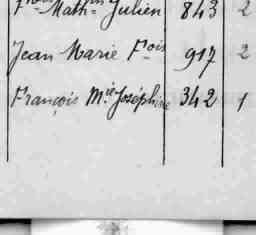 Fçois Mathin Julien 843 2
Jean Marie Fçois 917 2
François Mie Joséphine 342 1